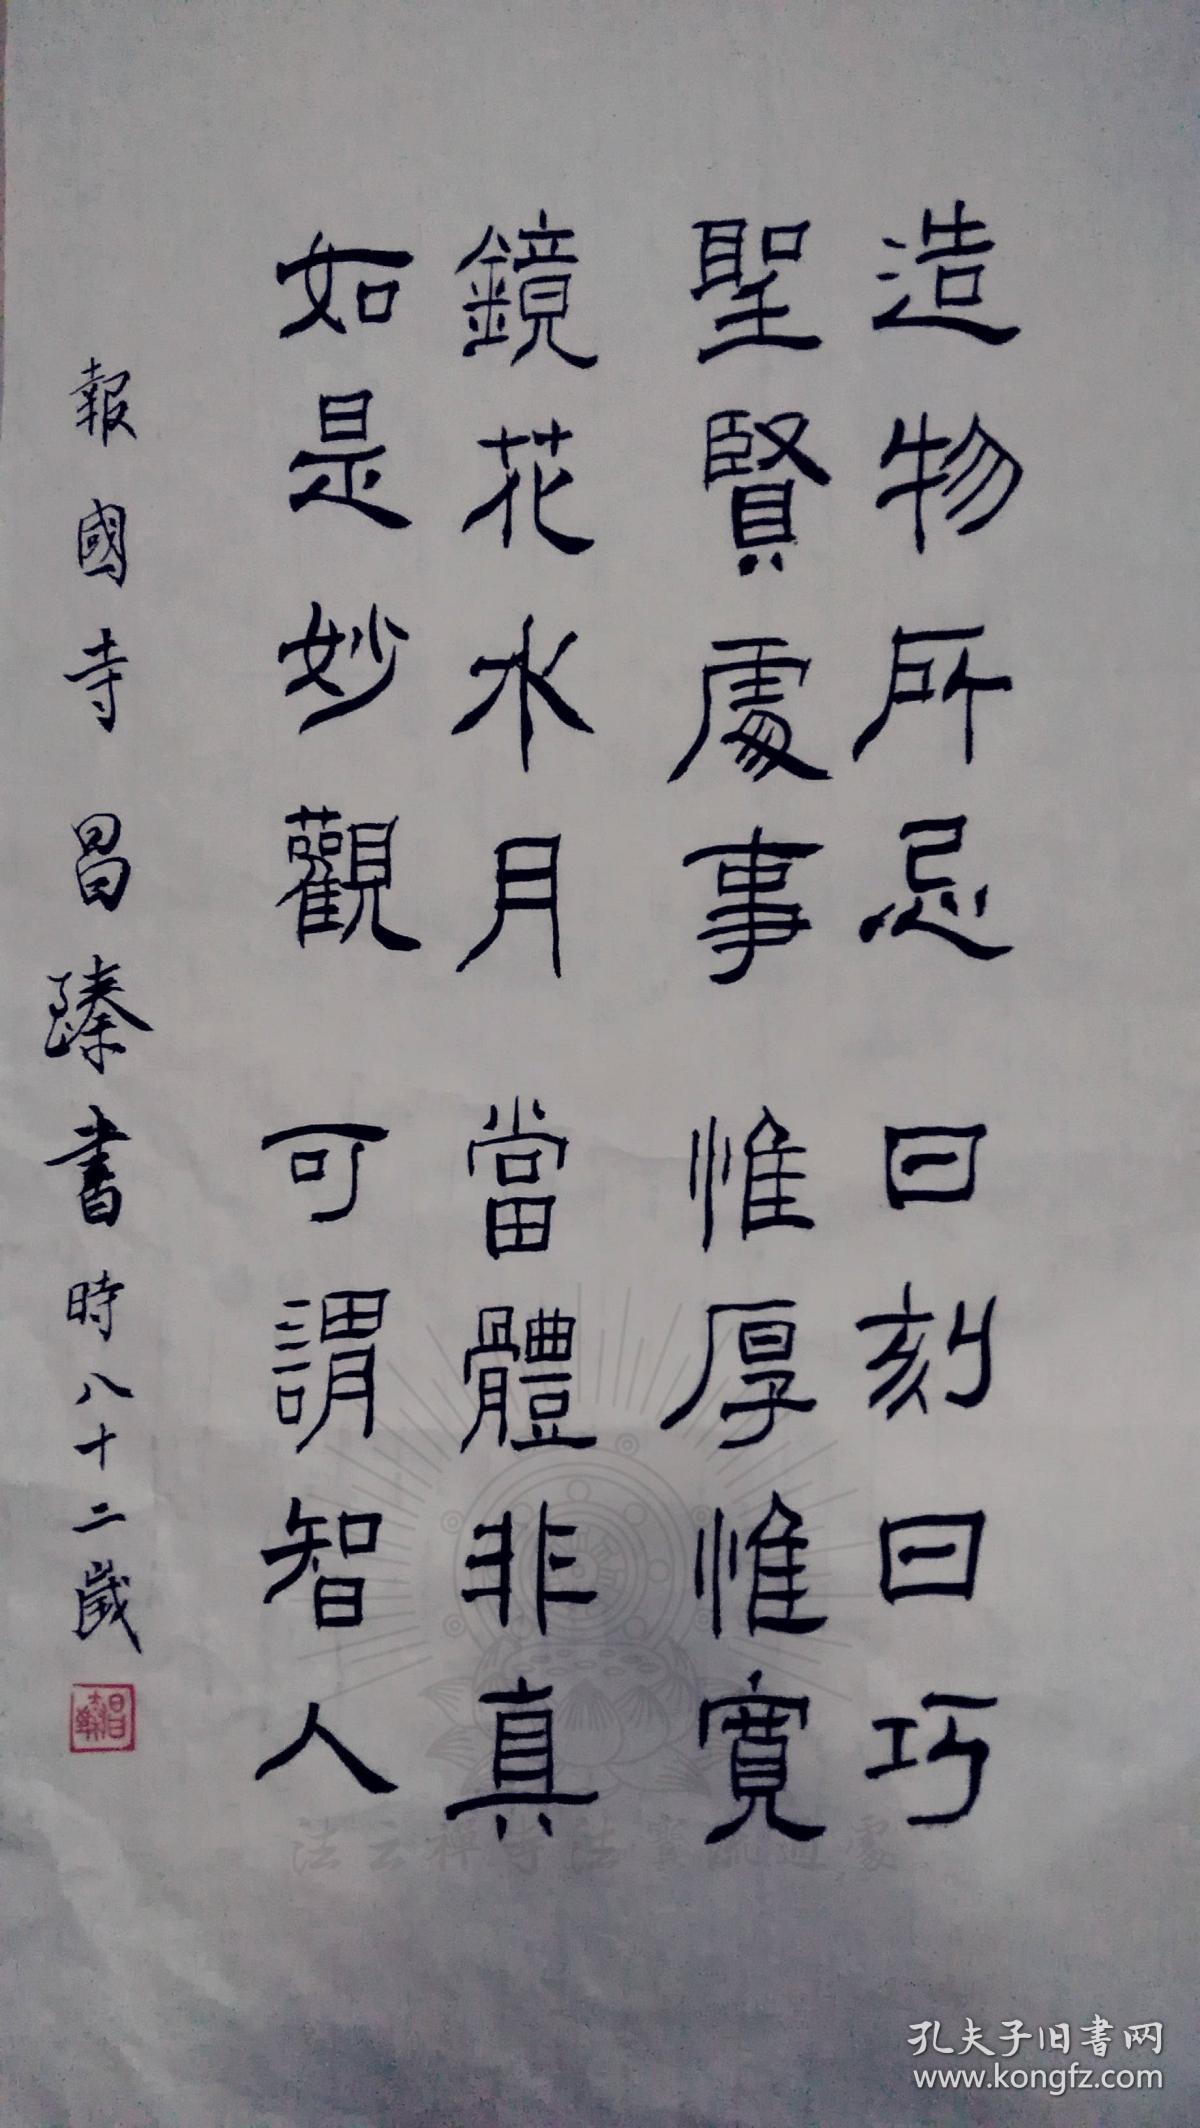 造物所忌 曰刻曰巧
聖賢處事 惟厚惟寬
鏡花水月 當體非真
如是妙觀 可謂智人
報國寺 昌臻書時八十二歲
法云禅寺法寳流通處
孔夫子旧书网
www.kongfz.com